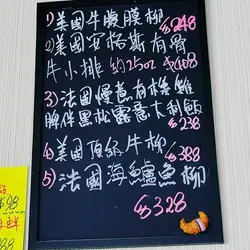 1)美國牛腹膜柳 $248
2)美國安格斯有骨
牛小排 約250z $408
3)法國慢煮有機雞
髀伴黑松露意大利飯
$238
4)美國頂級牛柳 $388
5)法國海鱸魚柳
$328